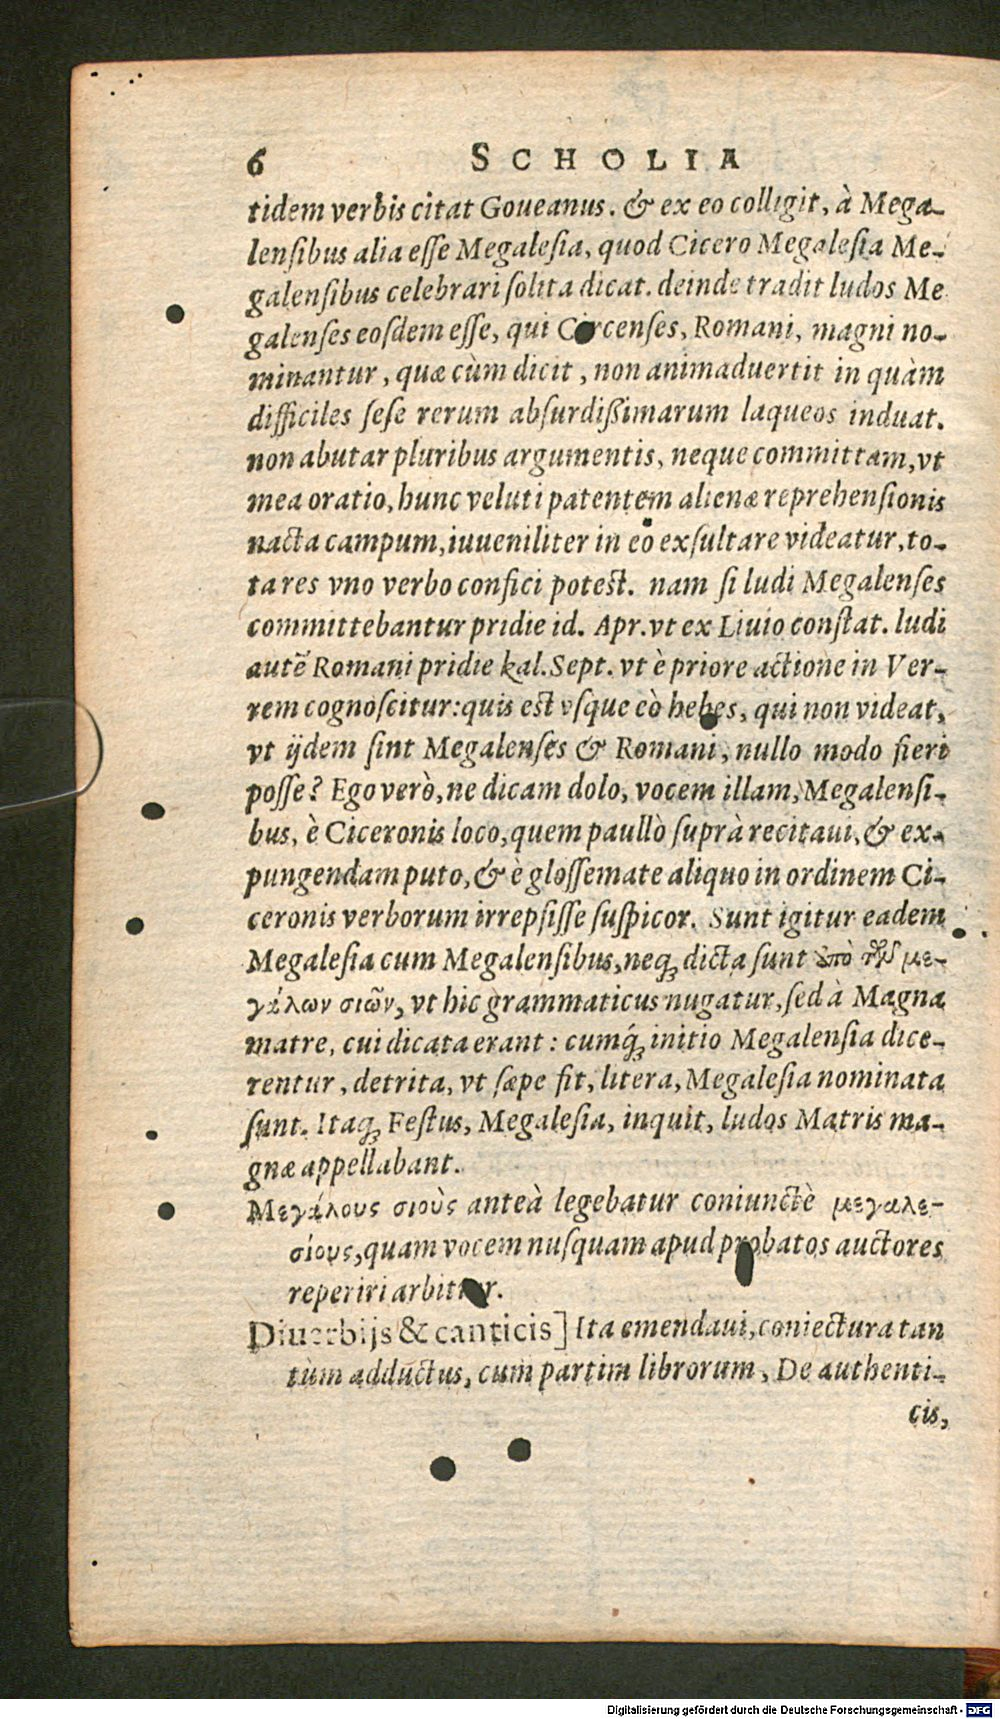 6 SCHOLIA
tidem verbis citat Goueanus. & ex eo colligit, à Mega-
lensibus alia esse Megalesia, quod Cicero Megalesia Me-
galensibus celebrari solita dicat. deinde tradit ludos Me
galenses eosdem esse, qui Circenses, Romani, magni no-
minantur, quæ cùm dicit, non animaduertit in quàm
difficiles sese rerum absurdißimarum laqueos induat.
non abutar pluribus argumentis, neque committam, vt
mea oratio, hunc veluti patentem alienæ reprehensionis
nacta campum, iuueniliter in eo exsultare videatur, to-
ta res vno verbo confici potest. nam si ludi Megalenses
committebantur pridie id. Apr. vt ex Liuio constat. ludi
autẽ Romani pridie kal. Sept. vt è priore actione in Ver-
rem cognoscitur: quis est vsque eò hebes, qui non videat,
vt ijdem sint Megalenses & Romani, nullo modo fieri
posse? Ego verò, ne dicam dolo, vocem illam, Megalensi-
bus, è Ciceronis loco, quem paullò suprà recitaui, & ex-
pungendam puto, & è glossemate aliquo in ordinem Ci-
ceronis verborum irrepsisse suspicor. Sunt igitur eadem
Megalesia cum Megalensibus, neq; dicta sunt ὑπὸ τῶν με-
γάλων σιῶν, vt hic grammaticus nugatur, sed à Magna
matre, cui dicata erant: cumq́; initio Megalensia dice-
rentur, detrita, vt sæpe fit, litera, Megalesia nominata
sunt. Itaq; Festus, Megalesia, inquit, ludos Matris ma-
gnæ appellabant.
Μεγάλους σιοὺς anteà legebatur coniunctè μεγαλε-
σίους, quam vocem nusquam apud probatos auctores
reperiri arbitror.
Diuerbijs & canticis] Ita emendaui, coniectura tan
tùm adductus, cum partim librorum, De authenti-
cis,
Digitalisierung gefördert durch die Deutsche Forschungsgemeinschaft - DFG